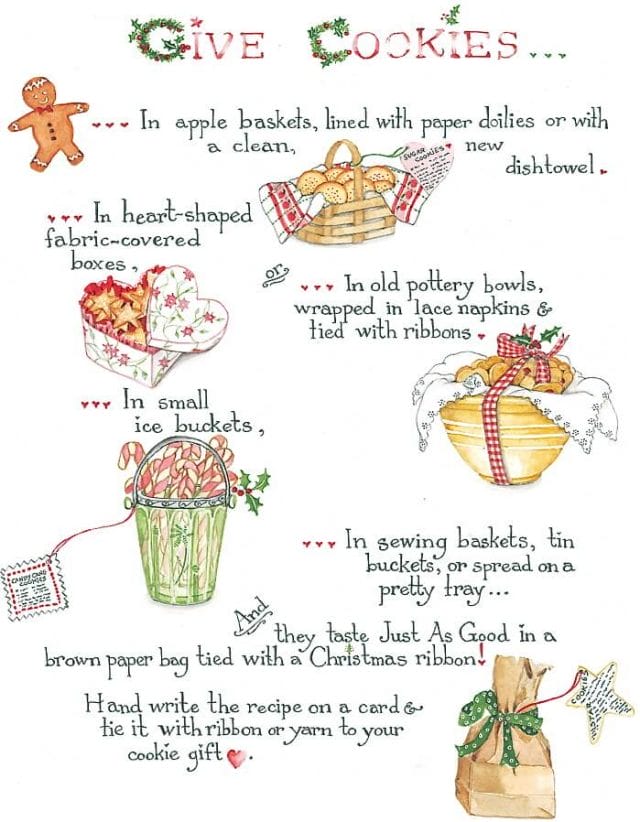 Give Cookies...
In apple baskets, lined with paper doilies or with
a clean, new
dishtowel.
SUGAR
COOKIES
In heart-shaped
fabric-covered
boxes,
or
In old pottery bowls,
wrapped in lace napkins &
tied with ribbons.
In small
ice buckets,
CANDY CANE
COOKIES
In sewing baskets, tin
buckets, or spread on a
pretty tray...
And
they taste Just As Good in a
brown paper bag tied with a Christmas ribbon!
COOKIES
Hand write the recipe on a card &
tie it with ribbon or yarn to your
cookie gift.